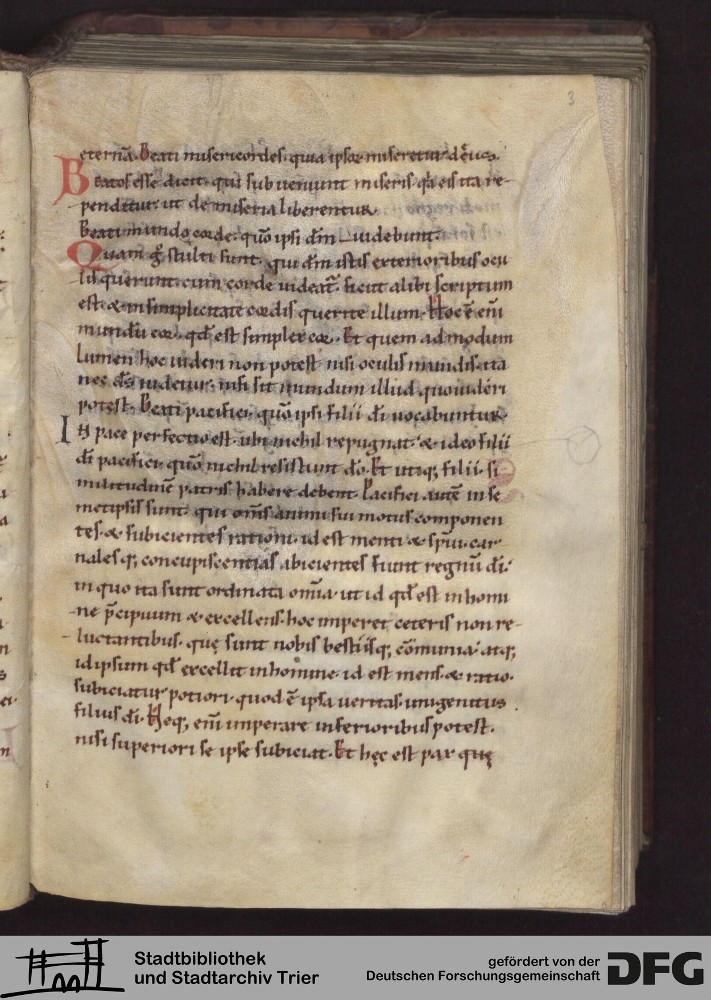 3
eternā. Beati misericordes. quia ipsoꝝ miseretur deus.
Beatos esse dicit. qui subveniunt miseris. qa eis ita re-
penditur. ut de miseria liberentur.
Beati mundo corde. quō ipsi dm̄ videbunt.
Quam gͦ stulti sunt. qui dm̄ istis exterioribus ocu
lis querunt. cum corde videat̄. sicut alibi scriptum
est. & in simplicitate cordis querite illum. Hoc ē eni̅
mundū cor. qd̄ est simplex cor. Et quem ad modum
lumen hoc videri non potest. nisi oculis mundis. ita
nec ds̄ videtur. nisi sit mundum illud. quo videri
potest. Beati pacifici. quō ipsi filii di̅ vocabuntur.
In pace perfectio est. ubi nichil repugnat. & ideo filii
di̅ pacifici. quō nichil resistunt do̅. Et utiq; filii. si
militudinē patris habere debent. Pacifici autē in se
metipsis sunt. qui om̅s animi sui motus componen
tes. & subicientes rationi. id est menti & spu̅i. car
nales q; concupiscentias abicientes fiunt regnū di̅.
in quo ita sunt ordinata om̅ia. ut id qd̄ est in homi
ne p̄cipuum & excellens. hoc imperet ceteris non re-
luctantibus. quę sunt nobis bestiisq; cōmunia. atq;
id ipsum qd̄ excellit in homine. id est mens. & ratio.
subiciatur potiori. quod ē ipsa veritas. unigenitus
filius di̅. Neq; eni̅ imperare inferioribus potest.
nisi superiori se ipse subiciat. Et hęc est pax quę
Stadtbibliothek
und Stadtarchiv Trier
gefördert von der
Deutschen Forschungsgemeinschaft
DFG